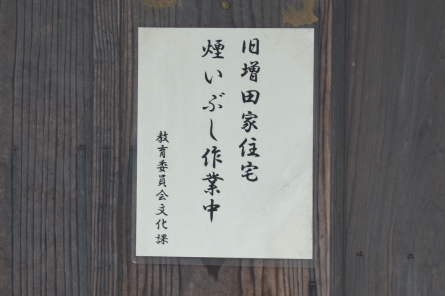 旧増田家住宅
煙いぶし作業中
教育委員会文化課